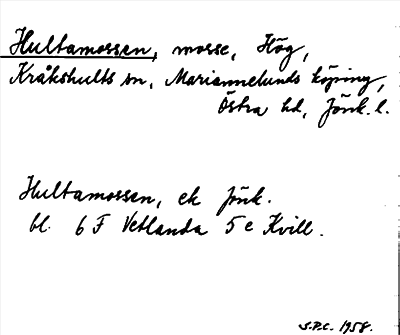 Hultamossen, mosse, Hög,
Kråkshults sn, Mariannelunds köping,
Östra hd, Jönk. l.
Hultamossen, ek Jönk.
bl. 6 F Vetlanda 5 e Kvill.
S.P.C. 1958.